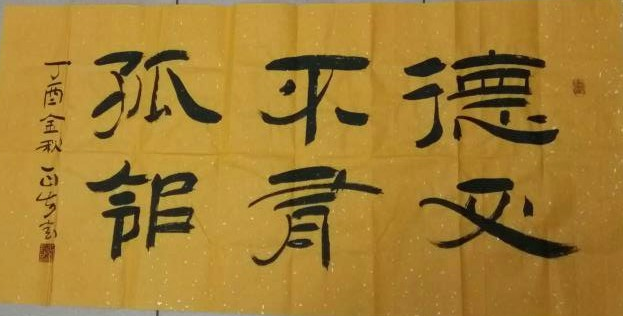 德不孤
必有邻
丁酉金秋